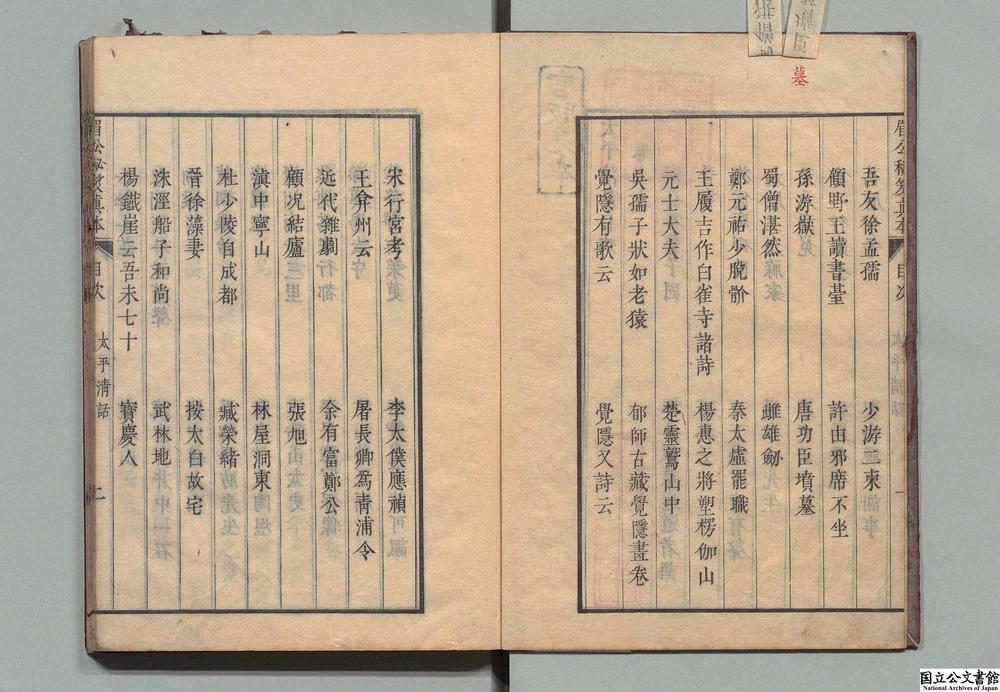 墓
吾友徐孟孺　少游二束
顧野王讀書臺　許由邪席不坐
孫游嶽　唐功臣墳墓
蜀僧湛然　雌雄劒
鄭元祐少脫骱　秦太虛罷職
王履吉作白雀寺諸詩　楊惠之將塑楞伽山
元士大夫　楚靈鷲山中
吳孺子狀如老猿　郁師古藏覺隱畫卷
覺隱有歌云　覺隱又詩云
宋行宮考　李太僕應禎
王弇州云　屠長卿爲靑浦令
近代雜劇　余有富鄭公
顧况結廬　張旭
滇中寧山　林屋洞東
杜少陵自成都　臧榮緖
晉徐藻妻　按太白故宅
洙涇船子和尚　武林地
楊鐵崖云吾未七十　寶慶人
眉公秘笈眞本　目次　太平清話　二
国立公文書館
National Archives of Japan